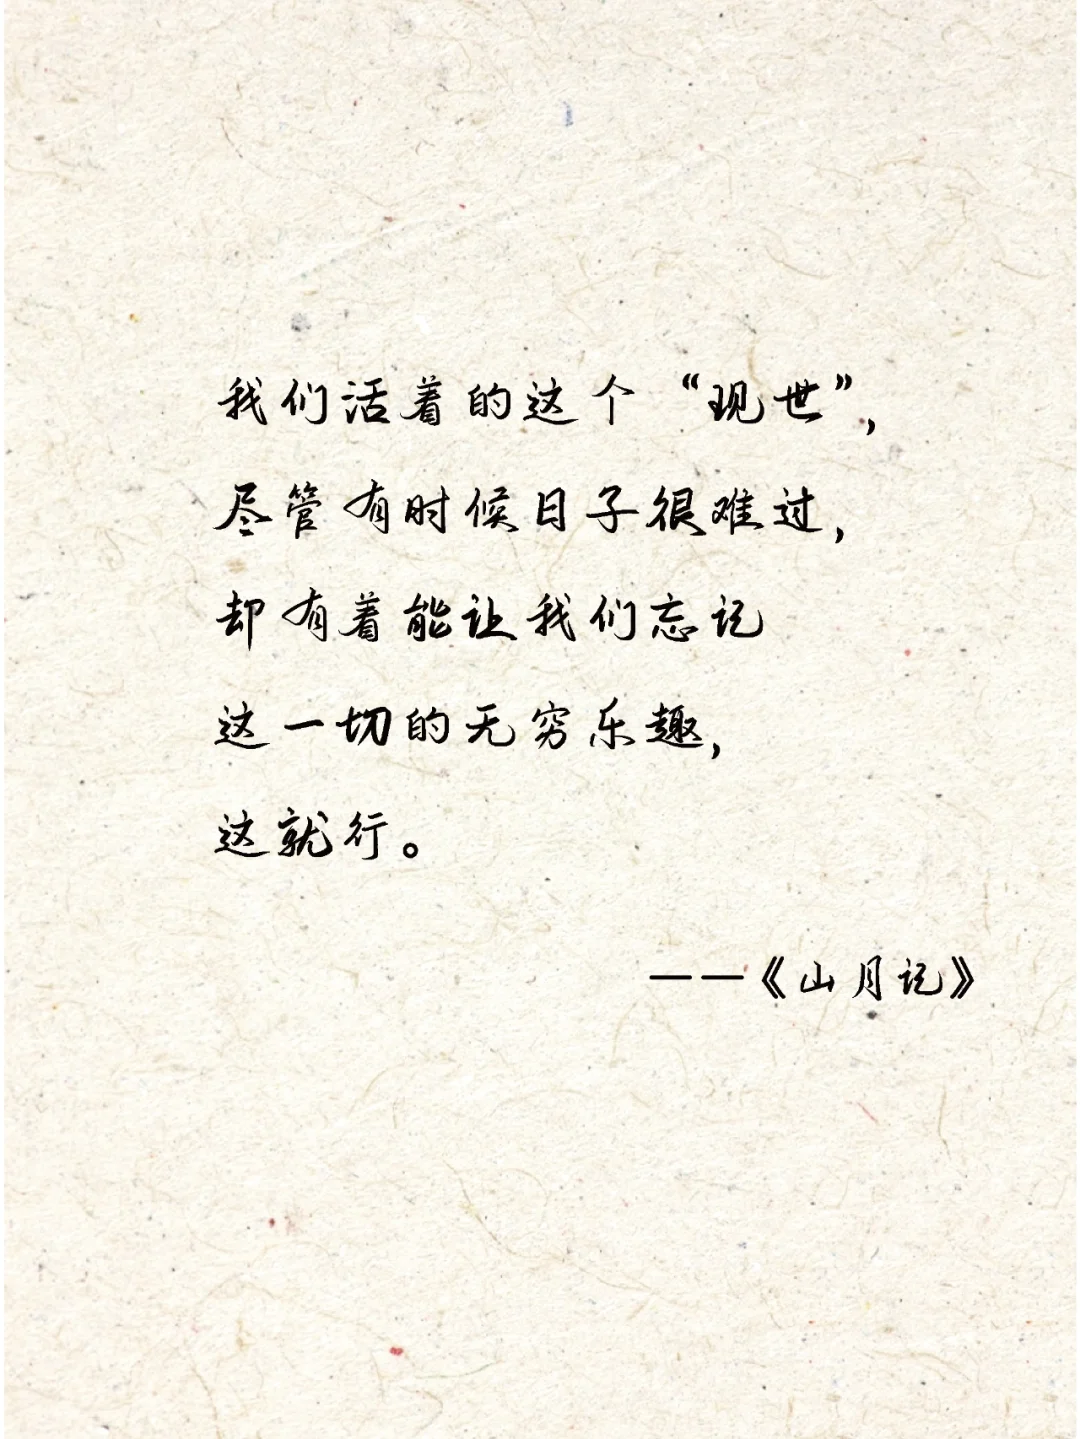 我们活着的这个“现世”，
尽管有时候日子很难过，
却有着能让我们忘记
这一切的无穷乐趣，
这就行。
——《山月记》